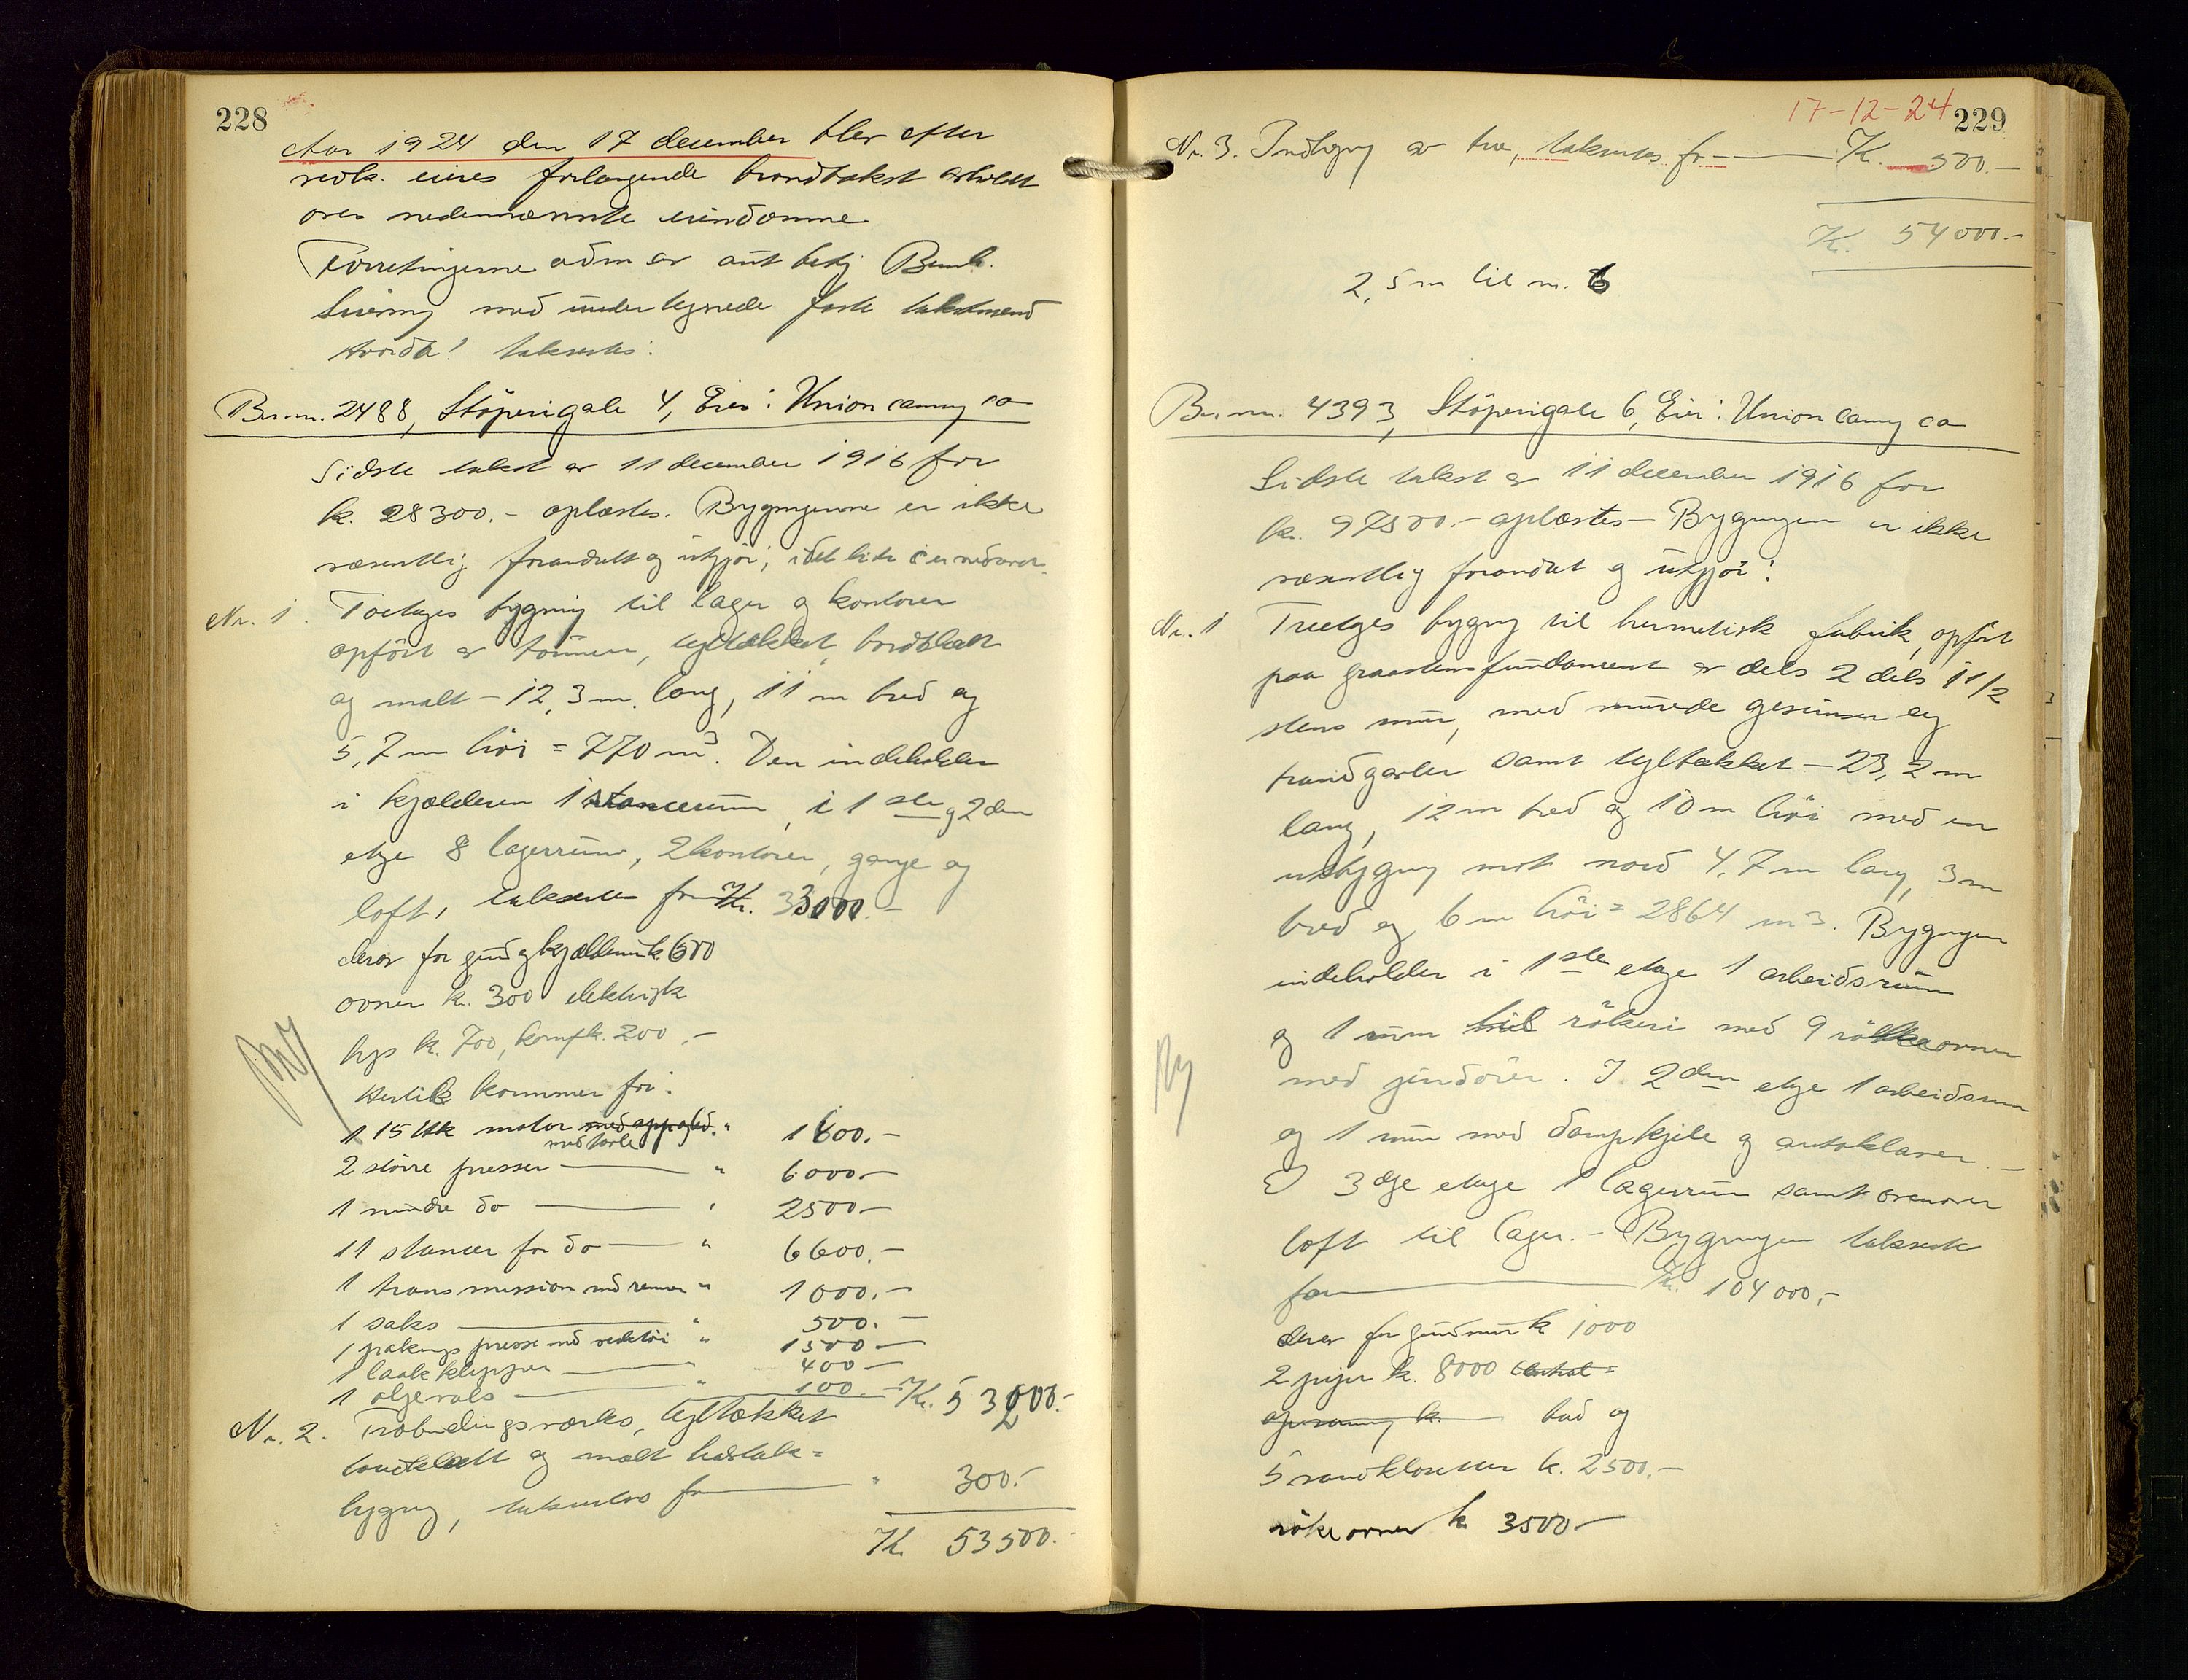 228
Aar 1924 den 17 december blev efter
vedk. eieres forlangende brandtakst avholdt
over nedennævnte eiendomme
Forretningerne adm av aut betj Bernh.
med undertegnede faste takstmænd
Hvorda! takseres:
Br.nr. 2488, Støperigate 4, Eier: Union canning co
Sidste takst er 11 december 1916 for
k. 28300.- oplæstes. Bygningerne er ikke
væsentlig forandrett og utgjør; idet hele
Nr. 1. Toetages bygning til lager og kontorer
opført av tømmer, tegltækket, bordklædt
og malt - 12,3 m. lang, 11 m bred og
5,7 m høi = 770 m³. Den indeholder
i kjælderen 1 stancerum, i 1ste og 2den
etage 8 lagerrum, 2 kontorer, gange og
loft, takseres for Kr. 33000.-
derav for grund og kjældermur k. 600
ovner k. 300 elektrisk
lys k. 700, komf k. 200.-
Hertil kommer for:
1 15 Hk motor med tavle " 1800.-
2 større presser " 6000.-
1 mindre do " 2500-
11 stancer for do " 6600.-
1 transmission med remer " 1000.-
1 saks " 500.-
1 paknings presse med verktøi " 1500-
1 laakklipper " 400-
1 oljevals " 100.- Kr. 53200.-
Nr. 2. Træbindingsverks, tegltækket
bordklædt og malt
bygning, takseres for " 300.-
Kr. 53500.-
17-12-24 229
Nr. 3. Indhegning av træ, takseres for Kr. 500.-
Kr. 54000.-
2,5 m til nr. 6
Br.nr. 4393, Støperigate 6, Eier: Union canning co
Sidste takst er 11 december 1916 for
kr. 97500.- oplæstes - Bygningen er ikke
væsentlig forandret og utgjør:
Nr. 1 Treetages bygning til hermetisk fabrik, opført
paa graastensfundament av dels 2 dels 1 1/2
stens mur, med murede gesimser og
brandgavler samt tegltækket - 23,2 m
lang, 12 m bred og 10 m høi med en
utbygning mot nord 4,7 m lang, 3 m
bred og 6 m høi = 2864 m3. Bygningen
indeholder i 1ste etage 1 arbeidsrum
og 1 rum til røkeri med 9 røkeovner
med jerndører. I 2den etage 1 arbeidsrum
og 1 rum med dampkjele og autoklaver.-
I 3dje etage 1 lagerrum samt ovenover
loft til lager. - Bygningen takseres
for Kr. 104000,-
derav for grundmur k 1000
2 piper k. 8000 central=
opvarmning k. bad og
5 vandklosetter k. 2500.-
røkeovner k 3500-